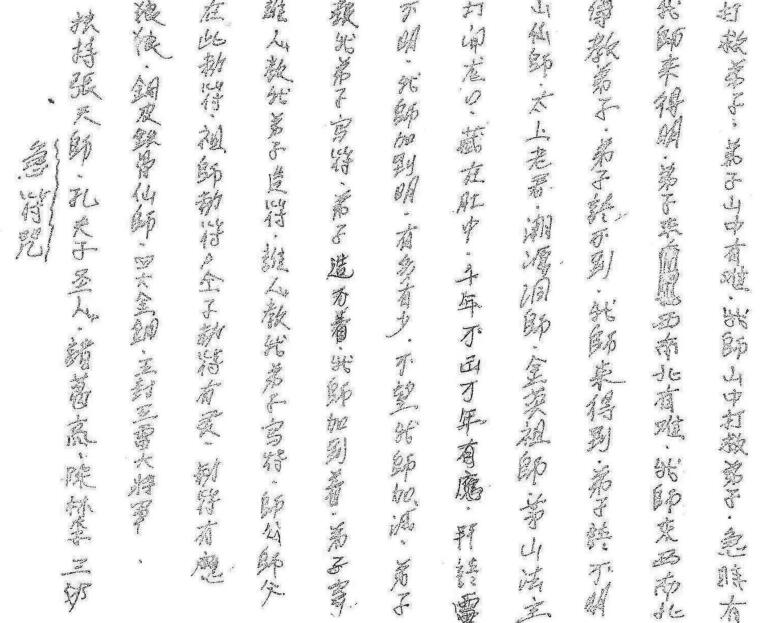 打救弟子.弟子山中有难.我師山中打救弟子.急時有
我師来得明.弟子東西南北有难.我師来西南北
傳教弟子.弟子請不到.我師来得到.弟子請不明
山仙師.太上老君.潮源洞師.金英祖師.茅山法主
打開龙口.藏在肚中.千年不出万年有應.拜請雷
不明.我師加到明.有多有少.不望我師加添.弟子
教我弟子寫符.弟子造不着.我師加到着.弟子寫
誰人教我弟子造符.誰人教我弟子寫符.師公師父
在此勅符.祖師勅符.子勅符有灵.勅符有應
狼狼.銅皮鉄骨仙師.四大金鋼.立封五雷大將軍.
扶持張天師.孔夫子五人.諸葛高.陳林李三奶
急符咒